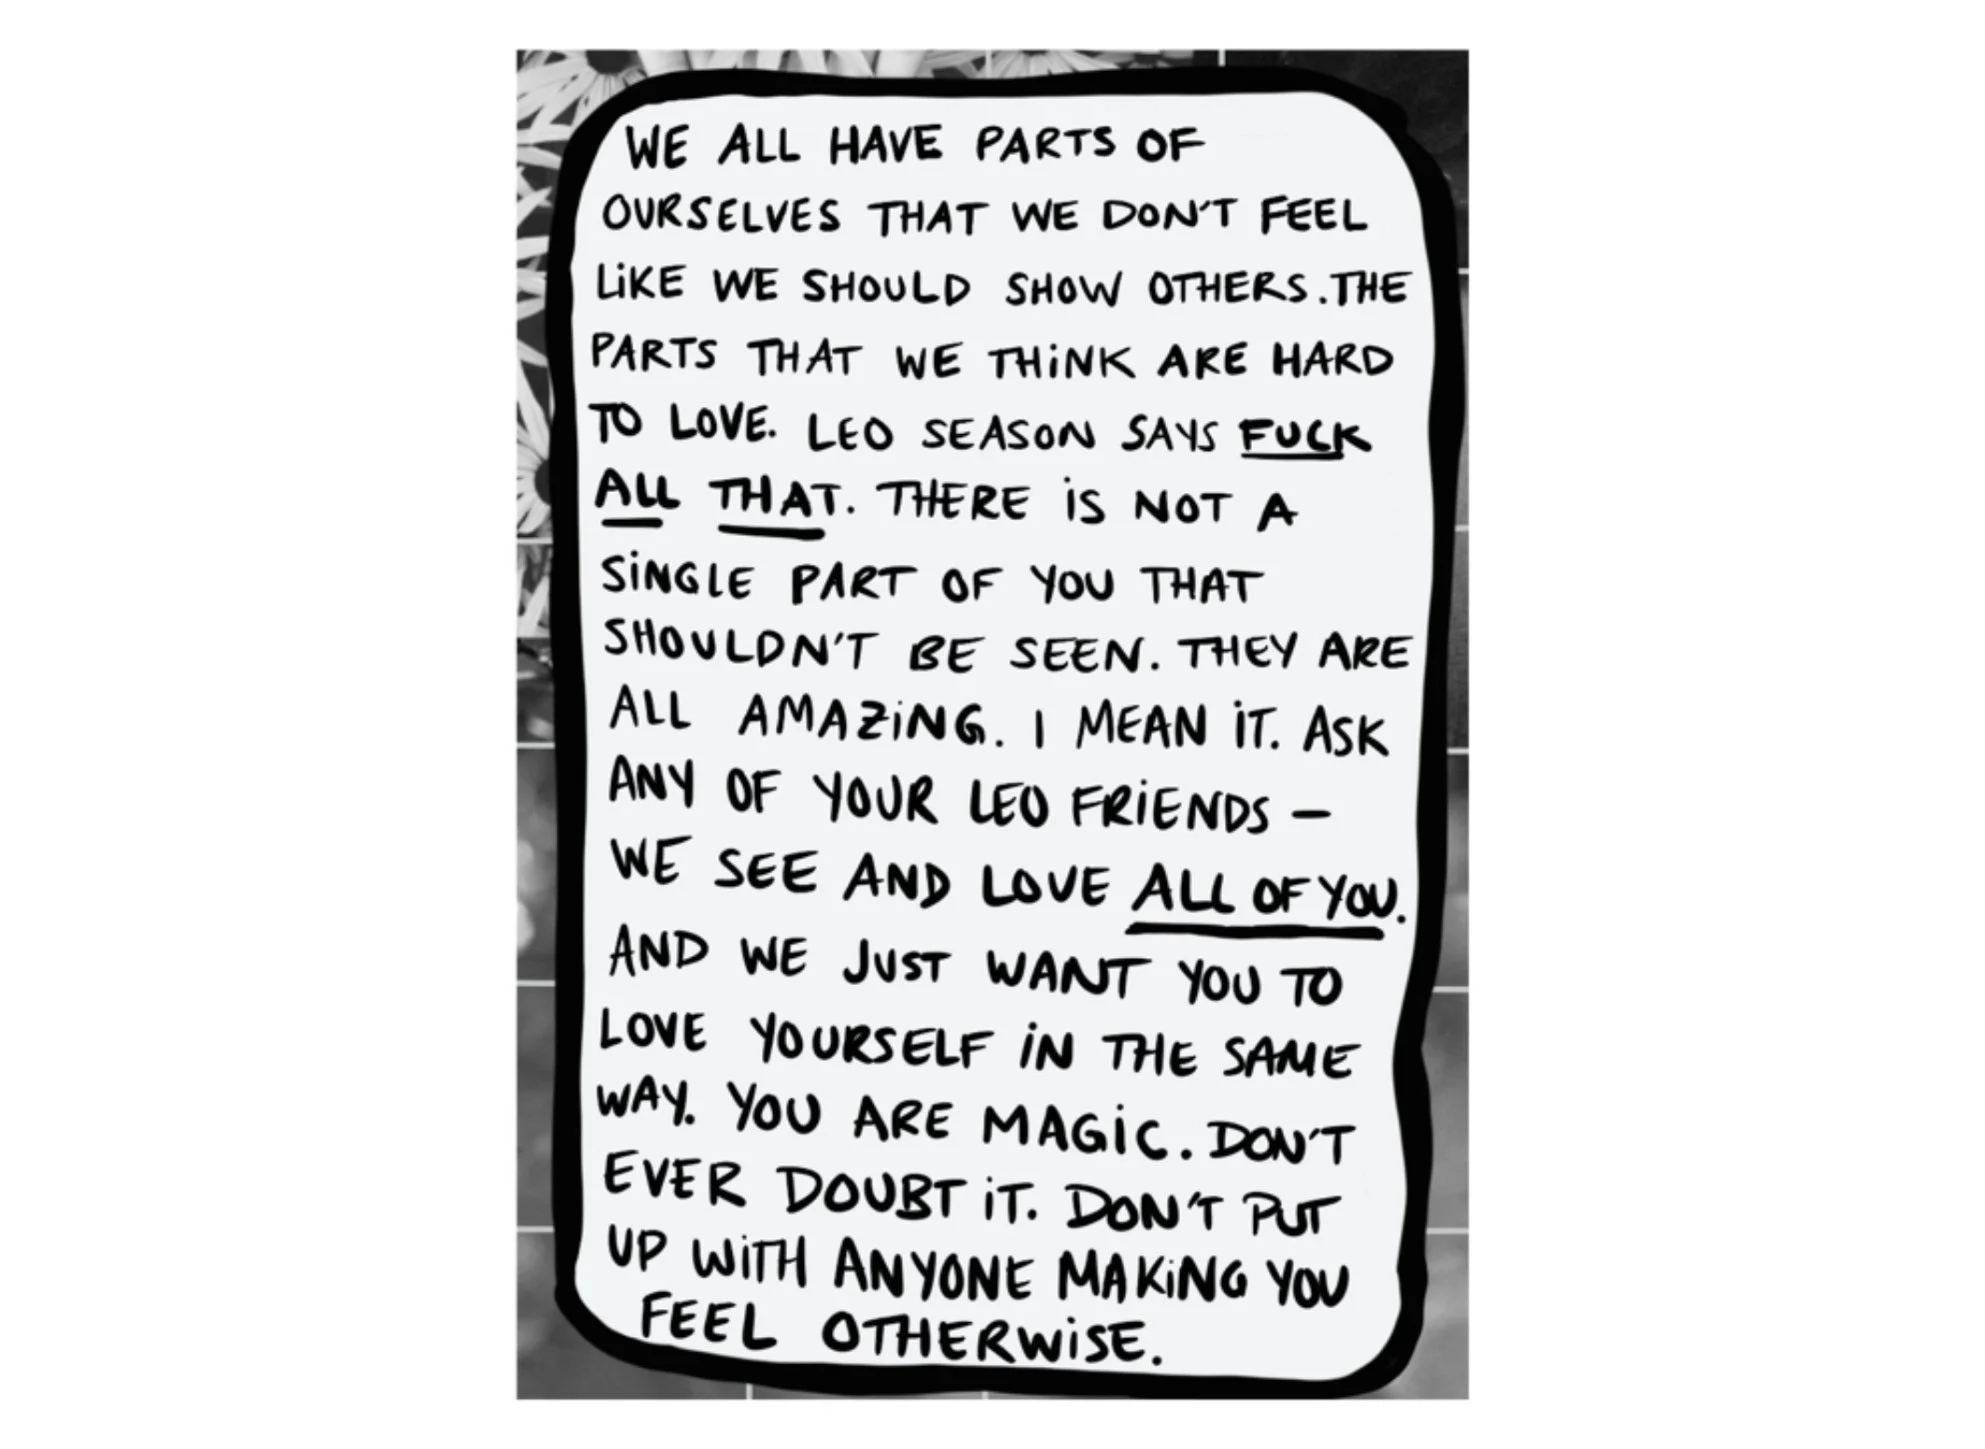 WE ALL HAVE PARTS OF
OURSELVES THAT WE DON'T FEEL
LIKE WE SHOULD SHOW OTHERS. THE
PARTS THAT WE THINK ARE HARD
TO LOVE. LEO SEASON SAYS FUCK
ALL THAT. THERE IS NOT A
SINGLE PART OF YOU THAT
SHOULDN'T BE SEEN. THEY ARE
ALL AMAZING. I MEAN IT. ASK
ANY OF YOUR LEO FRIENDS –
WE SEE AND LOVE ALL OF YOU.
AND WE JUST WANT YOU TO
LOVE YOURSELF IN THE SAME
WAY. YOU ARE MAGIC. DON'T
EVER DOUBT IT. DON'T PUT
UP WITH ANYONE MAKING YOU
FEEL OTHERWISE.